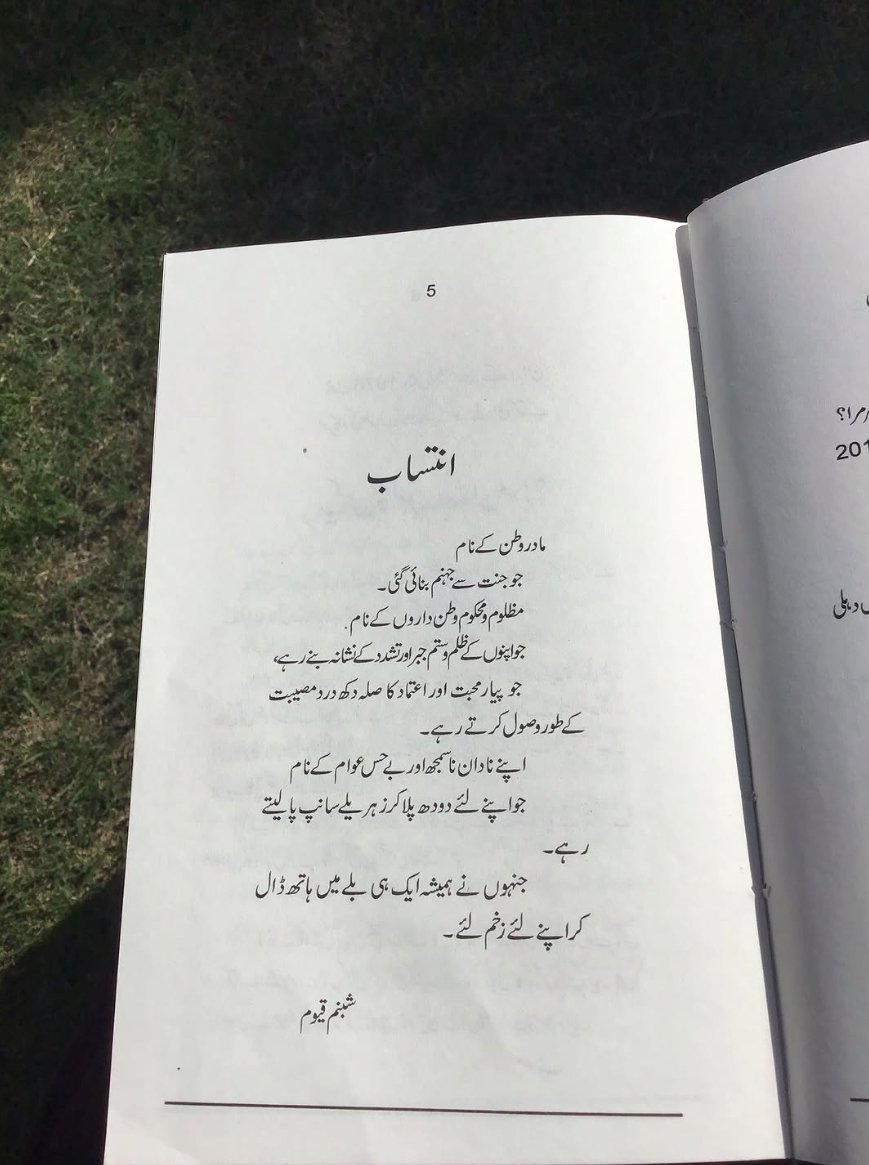 5
انتساب
مادر وطن کے نام
جو جنت سے جہنم بنائی گئی۔
مظلوم و محکوم وطن داروں کے نام۔
جو اپنوں کے ظلم و ستم جبر اور تشدد کے نشانہ بنے رہے،
جو پیار محبت اور اعتماد کا صلہ دکھ درد مصیبت
کے طور وصول کرتے رہے۔
اپنے نادان ناسمجھ اور بے حس عوام کے نام
جو اپنے لئے دودھ پلا کر زہریلے سانپ پالیتے
رہے۔
جنہوں نے ہمیشہ ایک ہی بلے میں ہاتھ ڈال
کر اپنے لئے زخم لئے۔
شبنم قیوم
مرا؟
201
دہلی